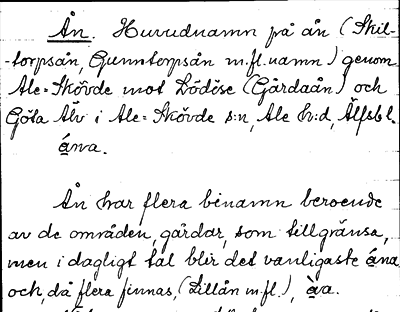 Ån. Huvudnamn på ån (Skil-
-torpsån, Gunntorpsån m.fl. namn) genom
Ale-Skövde mot Lödöse (Gårdaån) och
Göta Älv i Ale-Skövde s:n, Ale h:d, Älfsb l.
ána.
Ån har flera binamn beroende
av de områden, gårdar, som tillgränsa,
men i dagligt tal blir det vanligaste ána
och, då flera finnas, (Lillån m.fl.), àa.